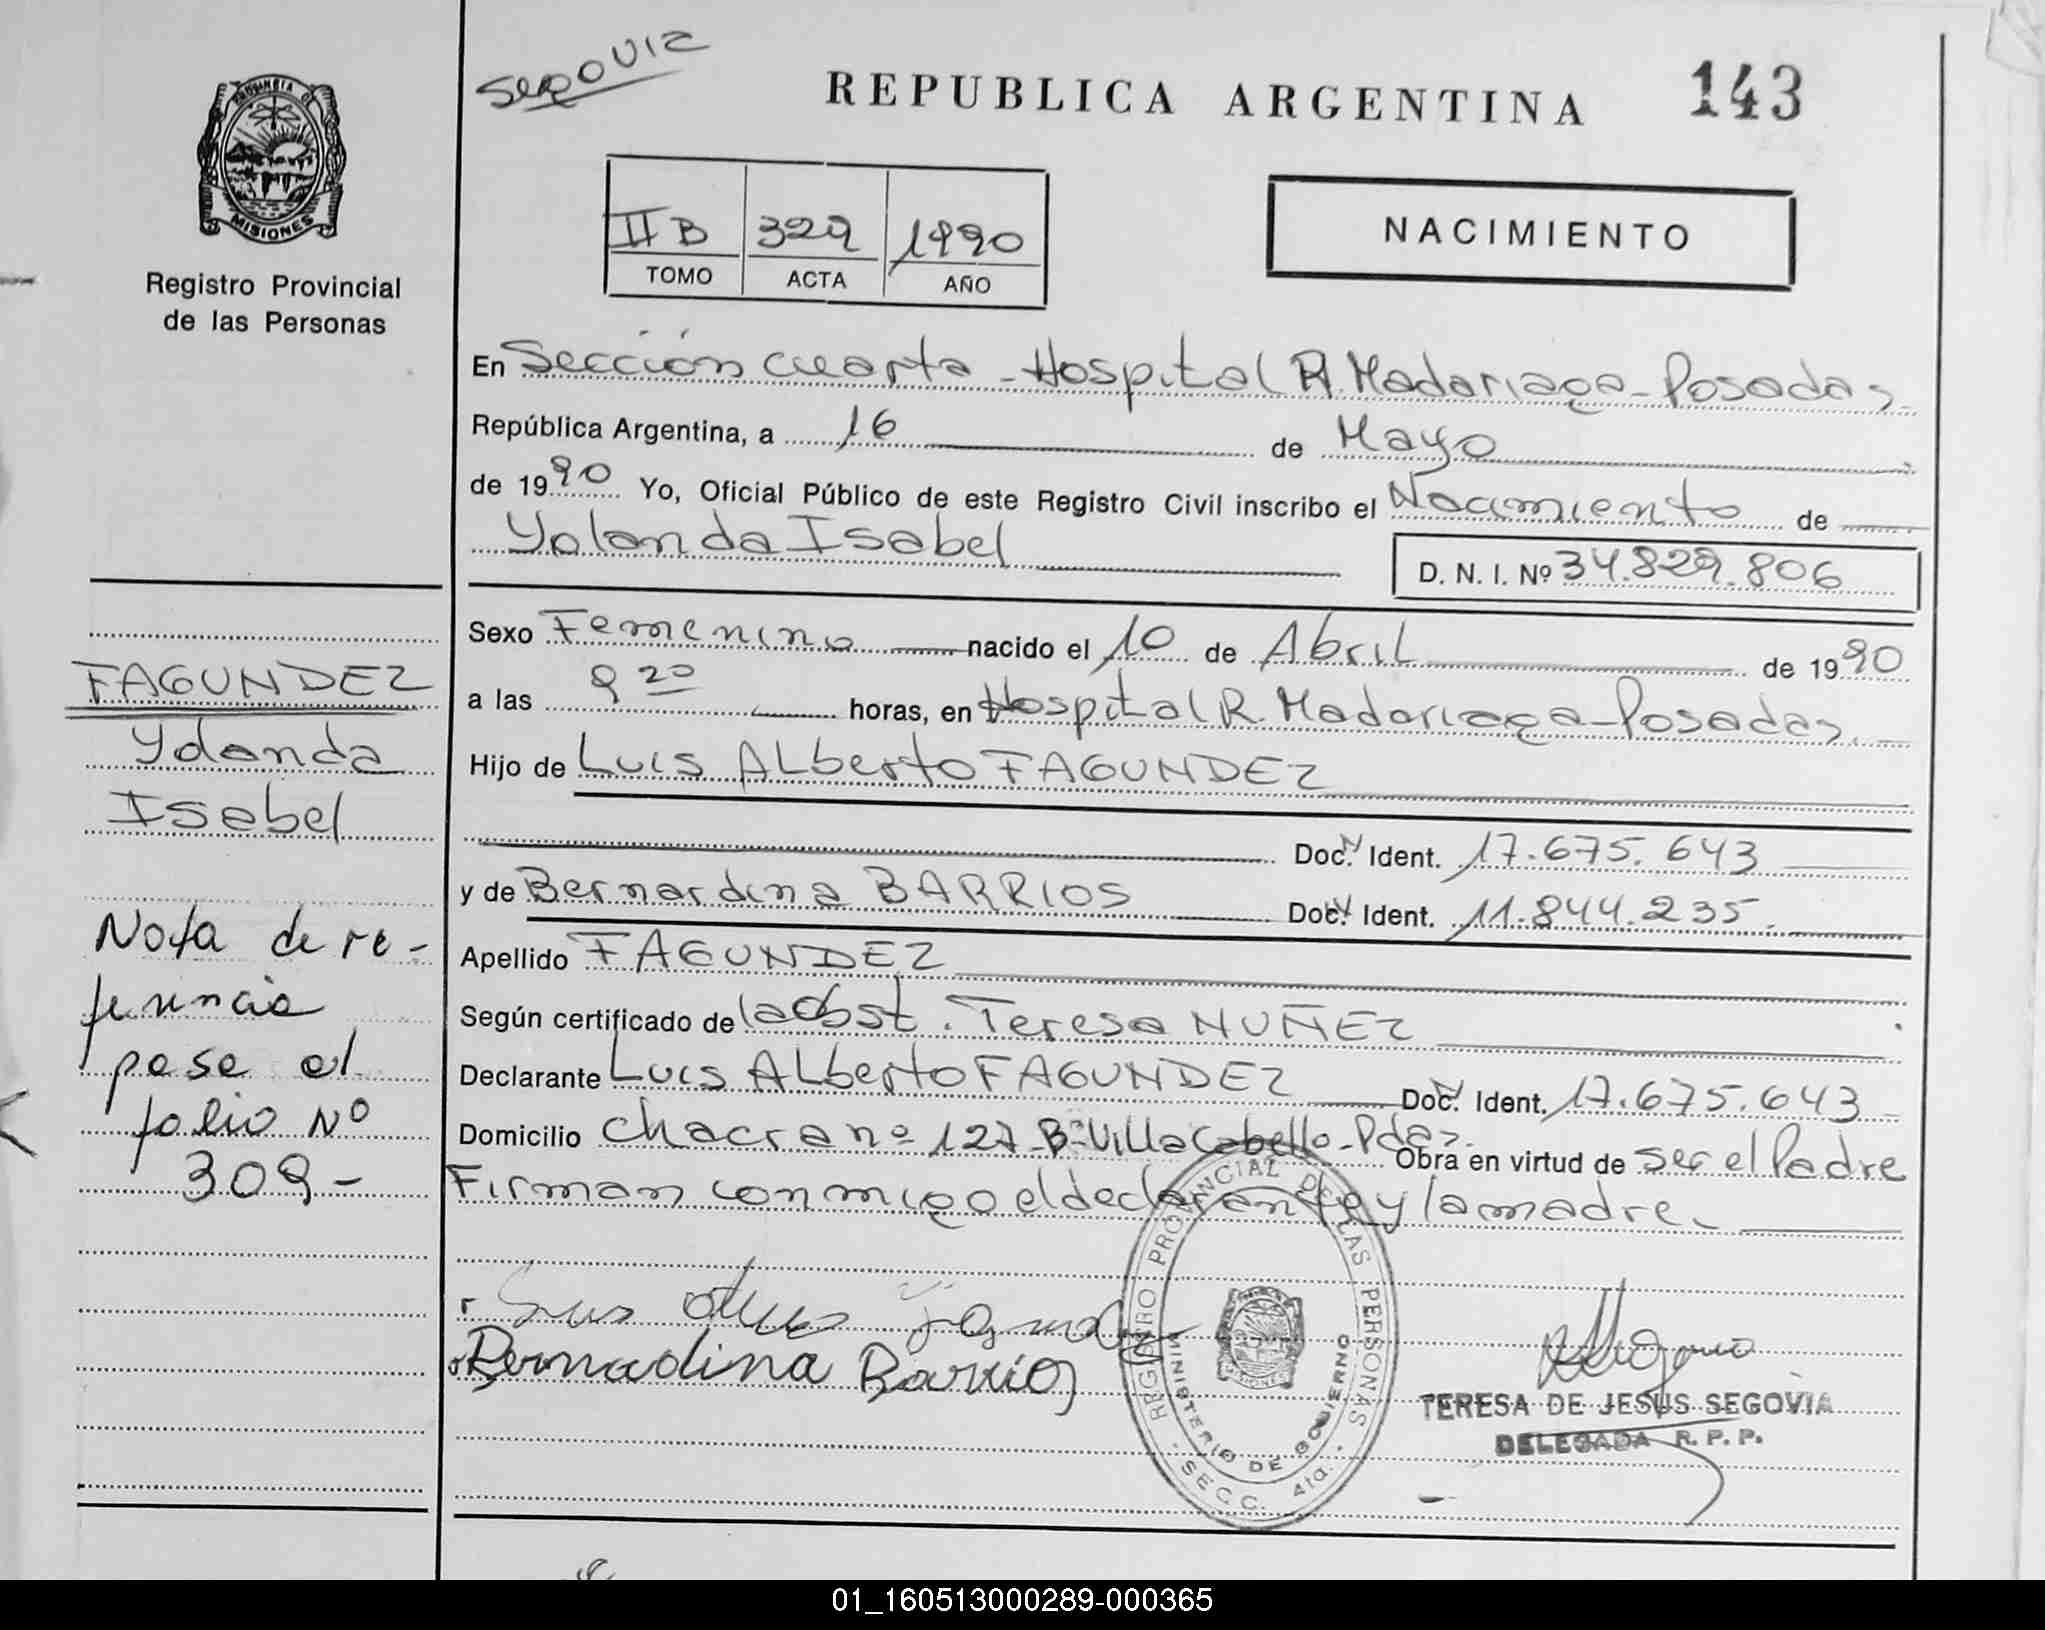 Segovia
REPUBLICA ARGENTINA
143
PROVINCIA DE
MISIONES
Registro Provincial
de las Personas
II B 329 1990
TOMO ACTA AÑO
NACIMIENTO
En Sección cuarta - Hospital R. Madariaga - Posadas.
República Argentina, a 16 de Mayo
de 1990 Yo, Oficial Público de este Registro Civil inscribo el Nacimiento de
Yolanda Isabel
D. N. I. Nº 34.829.806
Sexo Femenino nacido el 10 de Abril de 1990
a las 9 20 horas, en Hospital R. Madariaga - Posadas.
Hijo de Luis ALberto FAGUNDEZ
Doc. Ident. 17.675.643
y de Bernardina BARRIOS Doc. Ident. 11.844.235.
Apellido FAGUNDEZ
Según certificado de la obst. Teresa NUÑEZ
Declarante Luis ALberto FAGUNDEZ Doc. Ident. 17.675.643
Domicilio chacra nº 127 - Bº Villa Cabello - Pdas. Obra en virtud de ser el Padre
Firman conmigo el declarante y la madre.
Bernadina Barrios
REGISTRO PROVINCIAL DE LAS PERSONAS
MINISTERIO DE GOBIERNO
SECC. 4ta.
TERESA DE JESUS SEGOVIA
DELEGADA R. P. P.
FAGUNDEZ
Yolanda
Isabel
Nota de re-
ferencia
pase al
folio Nº
309-
01_160513000289-000365